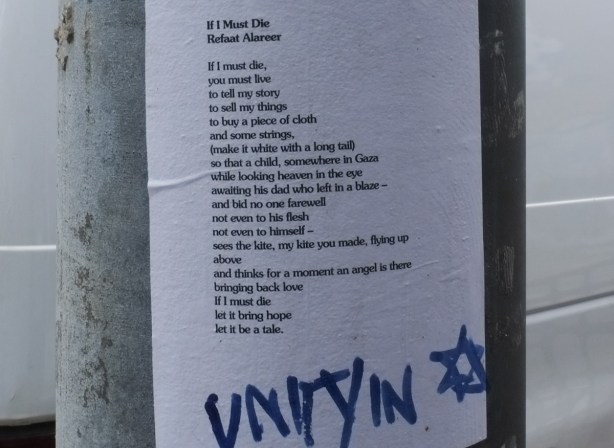 If I Must Die
Refaat Alareer
If I must die,
you must live
to tell my story
to sell my things
to buy a piece of cloth
and some strings,
(make it white with a long tail)
so that a child, somewhere in Gaza
while looking heaven in the eye
awaiting his dad who left in a blaze –
and bid no one farewell
not even to his flesh
not even to himself –
sees the kite, my kite you made, flying up
above
and thinks for a moment an angel is there
bringing back love
If I must die
let it bring hope
let it be a tale.
UNITY IN ✡